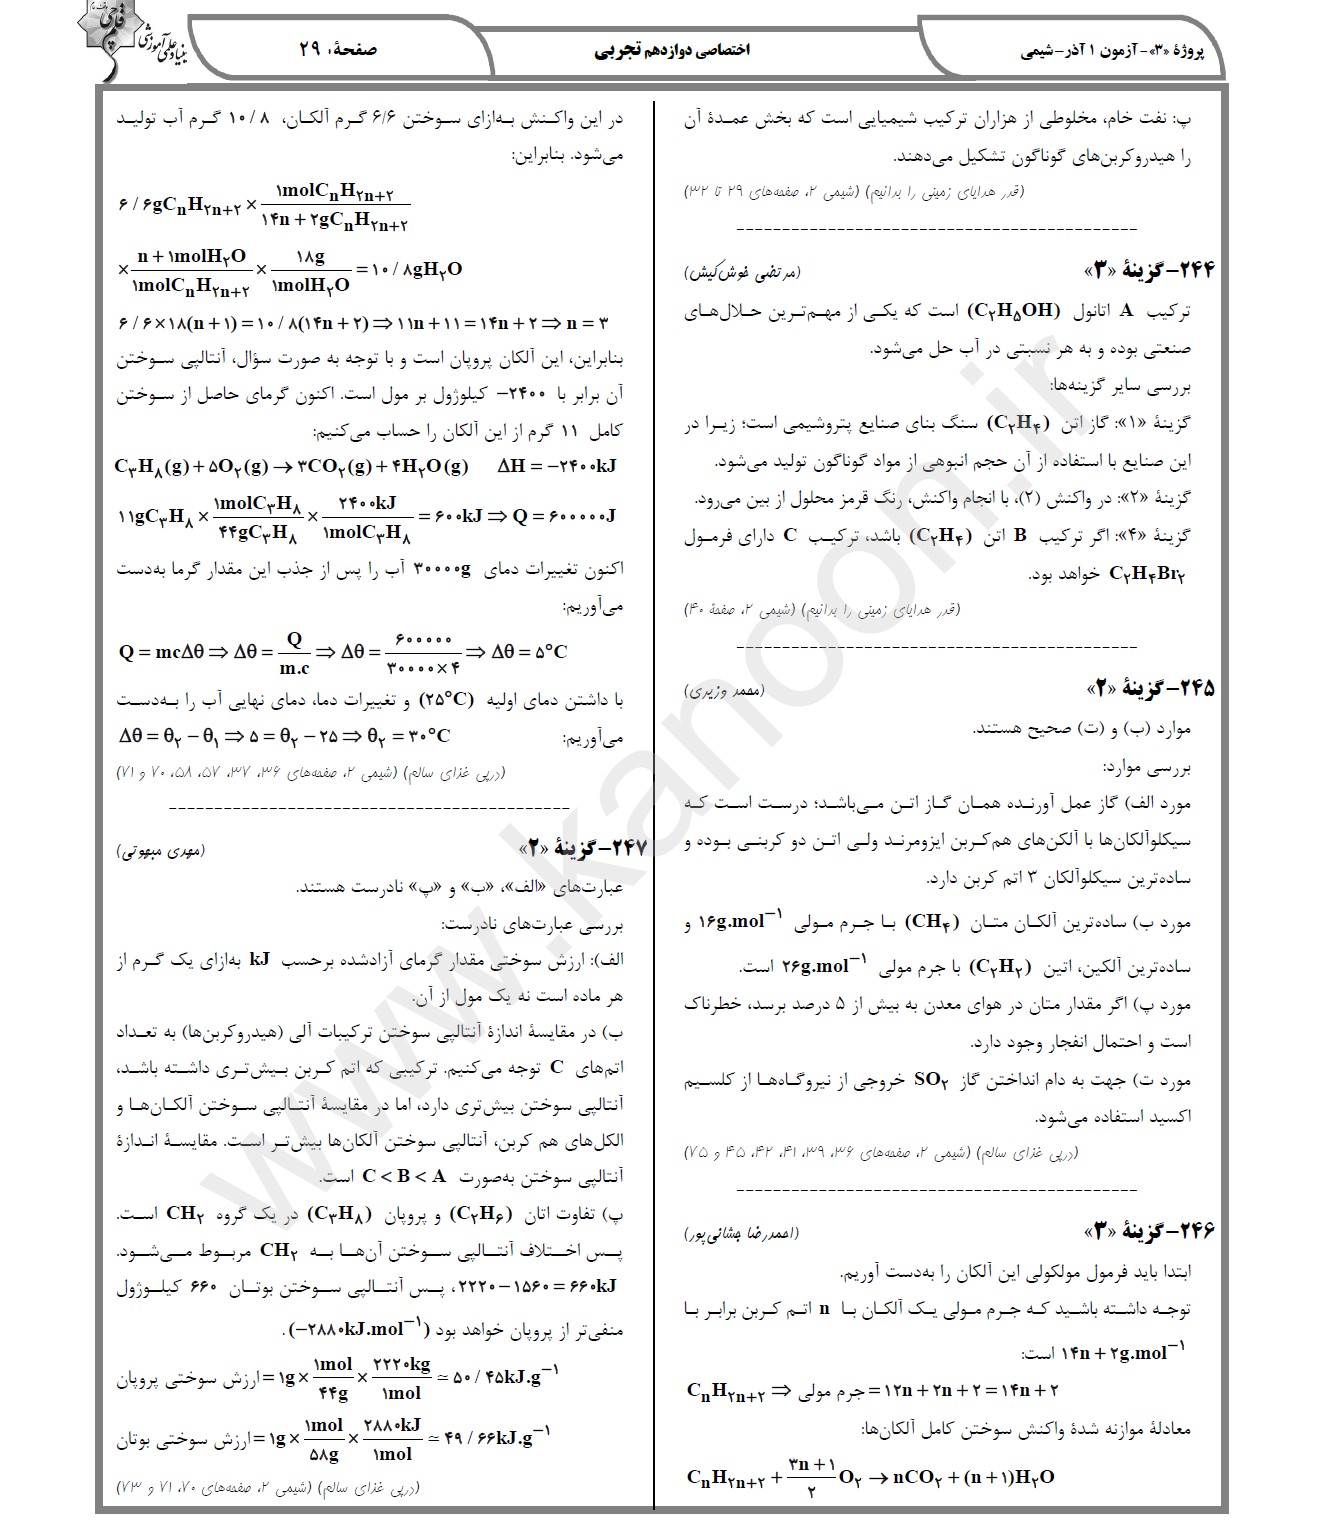 پروژهٔ «۳»-آزمون ۱ آذر-شیمی
اختصاصی دوازدهم تجربی
صفحهٔ: ۲۹
بنیاد علمی آموزشی
قلم‌چی
پ: نفت خام، مخلوطی از هزاران ترکیب شیمیایی است که بخش عمدهٔ آن
را هیدروکربن‌های گوناگون تشکیل می‌دهند.
(قدر هدایای زمینی را بدانیم) (شیمی ۲، صفحه‌های ۲۹ تا ۳۲)
۲۴۴-گزینهٔ «۳»
(مرتضی خوش‌کیش)
ترکیب A اتانول (C۲H۵OH) است که یکی از مهم‌ترین حلال‌های
صنعتی بوده و به هر نسبتی در آب حل می‌شود.
بررسی سایر گزینه‌ها:
گزینهٔ «۱»: گاز اتن (C۲H۴) سنگ بنای صنایع پتروشیمی است؛ زیرا در
این صنایع با استفاده از آن حجم انبوهی از مواد گوناگون تولید می‌شود.
گزینهٔ «۲»: در واکنش (۲)، با انجام واکنش، رنگ قرمز محلول از بین می‌رود.
گزینهٔ «۴»: اگر ترکیب B اتن (C۲H۴) باشد، ترکیب C دارای فرمول
C۲H۴Br۲ خواهد بود.
(قدر هدایای زمینی را بدانیم) (شیمی ۲، صفحهٔ ۴۰)
۲۴۵-گزینهٔ «۲»
(محمد وزیری)
موارد (ب) و (ت) صحیح هستند.
بررسی موارد:
مورد الف) گاز عمل آورنده همان گاز اتن می‌باشد؛ درست است که
سیکلوآلکان‌ها با آلکن‌های هم‌کربن ایزومرند ولی اتن دو کربنی بوده و
ساده‌ترین سیکلوآلکان ۳ اتم کربن دارد.
مورد ب) ساده‌ترین آلکان متان (CH۴) با جرم مولی ۱۶g.mol⁻¹ و
ساده‌ترین آلکین، اتین (C۲H۲) با جرم مولی ۲۶g.mol⁻¹ است.
مورد پ) اگر مقدار متان در هوای معدن به بیش از ۵ درصد برسد، خطرناک
است و احتمال انفجار وجود دارد.
مورد ت) جهت به دام انداختن گاز SO۲ خروجی از نیروگاه‌ها از کلسیم
اکسید استفاده می‌شود.
(درپی غذای سالم) (شیمی ۲، صفحه‌های ۳۶، ۳۹، ۴۱، ۴۲، ۴۵ و ۷۵)
۲۴۶-گزینهٔ «۳»
(احمدرضا جشانی‌پور)
ابتدا باید فرمول مولکولی این آلکان را به‌دست آوریم.
توجه داشته باشید که جرم مولی یک آلکان با n اتم کربن برابر با
۱۴n+۲g.mol⁻¹ است:
CnH۲n+۲ ⇒ جرم مولی = ۱۲n+۲n+۲ = ۱۴n+۲
معادلهٔ موازنه شدهٔ واکنش سوختن کامل آلکان‌ها:
CnH۲n+۲ + (۳n+۱)/۲ O۲ → nCO۲ + (n+۱)H۲O
در این واکنش به‌ازای سوختن ۶/۶ گرم آلکان، ۱۰/۸ گرم آب تولید
می‌شود. بنابراین:
۶/۶gCnH۲n+۲ × ۱molCnH۲n+۲ / ۱۴n+۲gCnH۲n+۲
× n+۱molH۲O / ۱molCnH۲n+۲ × ۱۸g / ۱molH۲O = ۱۰/۸gH۲O
۶/۶×۱۸(n+۱) = ۱۰/۸(۱۴n+۲) ⇒ ۱۱n+۱۱ = ۱۴n+۲ ⇒ n = ۳
بنابراین، این آلکان پروپان است و با توجه به صورت سؤال، آنتالپی سوختن
آن برابر با ۲۴۰۰− کیلوژول بر مول است. اکنون گرمای حاصل از سوختن
کامل ۱۱ گرم از این آلکان را حساب می‌کنیم:
C۳H۸(g)+۵O۲(g) → ۳CO۲(g)+۴H۲O(g) ΔH = −۲۴۰۰kJ
۱۱gC۳H۸ × ۱molC۳H۸ / ۴۴gC۳H۸ × ۲۴۰۰kJ / ۱molC۳H۸ = ۶۰۰kJ ⇒ Q = ۶۰۰۰۰۰J
اکنون تغییرات دمای ۳۰۰۰۰g آب را پس از جذب این مقدار گرما به‌دست
می‌آوریم:
Q = mcΔθ ⇒ Δθ = Q / m.c ⇒ Δθ = ۶۰۰۰۰۰ / ۳۰۰۰۰×۴ ⇒ Δθ = ۵°C
با داشتن دمای اولیه (۲۵°C) و تغییرات دما، دمای نهایی آب را به‌دست
می‌آوریم: Δθ = θ۲ − θ۱ ⇒ ۵ = θ۲ − ۲۵ ⇒ θ۲ = ۳۰°C
(درپی غذای سالم) (شیمی ۲، صفحه‌های ۳۶، ۳۷، ۵۷، ۵۸، ۷۰ و ۷۱)
۲۴۷-گزینهٔ «۲»
(مهدی مبهوتی)
عبارت‌های «الف»، «ب» و «پ» نادرست هستند.
بررسی عبارت‌های نادرست:
الف): ارزش سوختی مقدار گرمای آزادشده برحسب kJ به‌ازای یک گرم از
هر ماده است نه یک مول از آن.
ب) در مقایسهٔ اندازهٔ آنتالپی سوختن ترکیبات آلی (هیدروکربن‌ها) به تعداد
اتم‌های C توجه می‌کنیم. ترکیبی که اتم کربن بیش‌تری داشته باشد،
آنتالپی سوختن بیش‌تری دارد، اما در مقایسهٔ آنتالپی سوختن آلکان‌ها و
الکل‌های هم کربن، آنتالپی سوختن آلکان‌ها بیش‌تر است. مقایسهٔ اندازهٔ
آنتالپی سوختن به‌صورت C < B < A است.
پ) تفاوت اتان (C۲H۶) و پروپان (C۳H۸) در یک گروه CH۲ است.
پس اختلاف آنتالپی سوختن آن‌ها به CH۲ مربوط می‌شود.
۲۲۲۰−۱۵۶۰ = ۶۶۰kJ، پس آنتالپی سوختن بوتان ۶۶۰ کیلوژول
منفی‌تر از پروپان خواهد بود (−۲۸۸۰kJ.mol⁻¹).
ارزش سوختی پروپان = ۱g × ۱mol / ۴۴g × ۲۲۲۰kg / ۱mol ≃ ۵۰/۴۵kJ.g⁻¹
ارزش سوختی بوتان = ۱g × ۱mol / ۵۸g × ۲۸۸۰kJ / ۱mol ≃ ۴۹/۶۶kJ.g⁻¹
(درپی غذای سالم) (شیمی ۲، صفحه‌های ۷۰، ۷۱ و ۷۳)
www.kanoon.ir